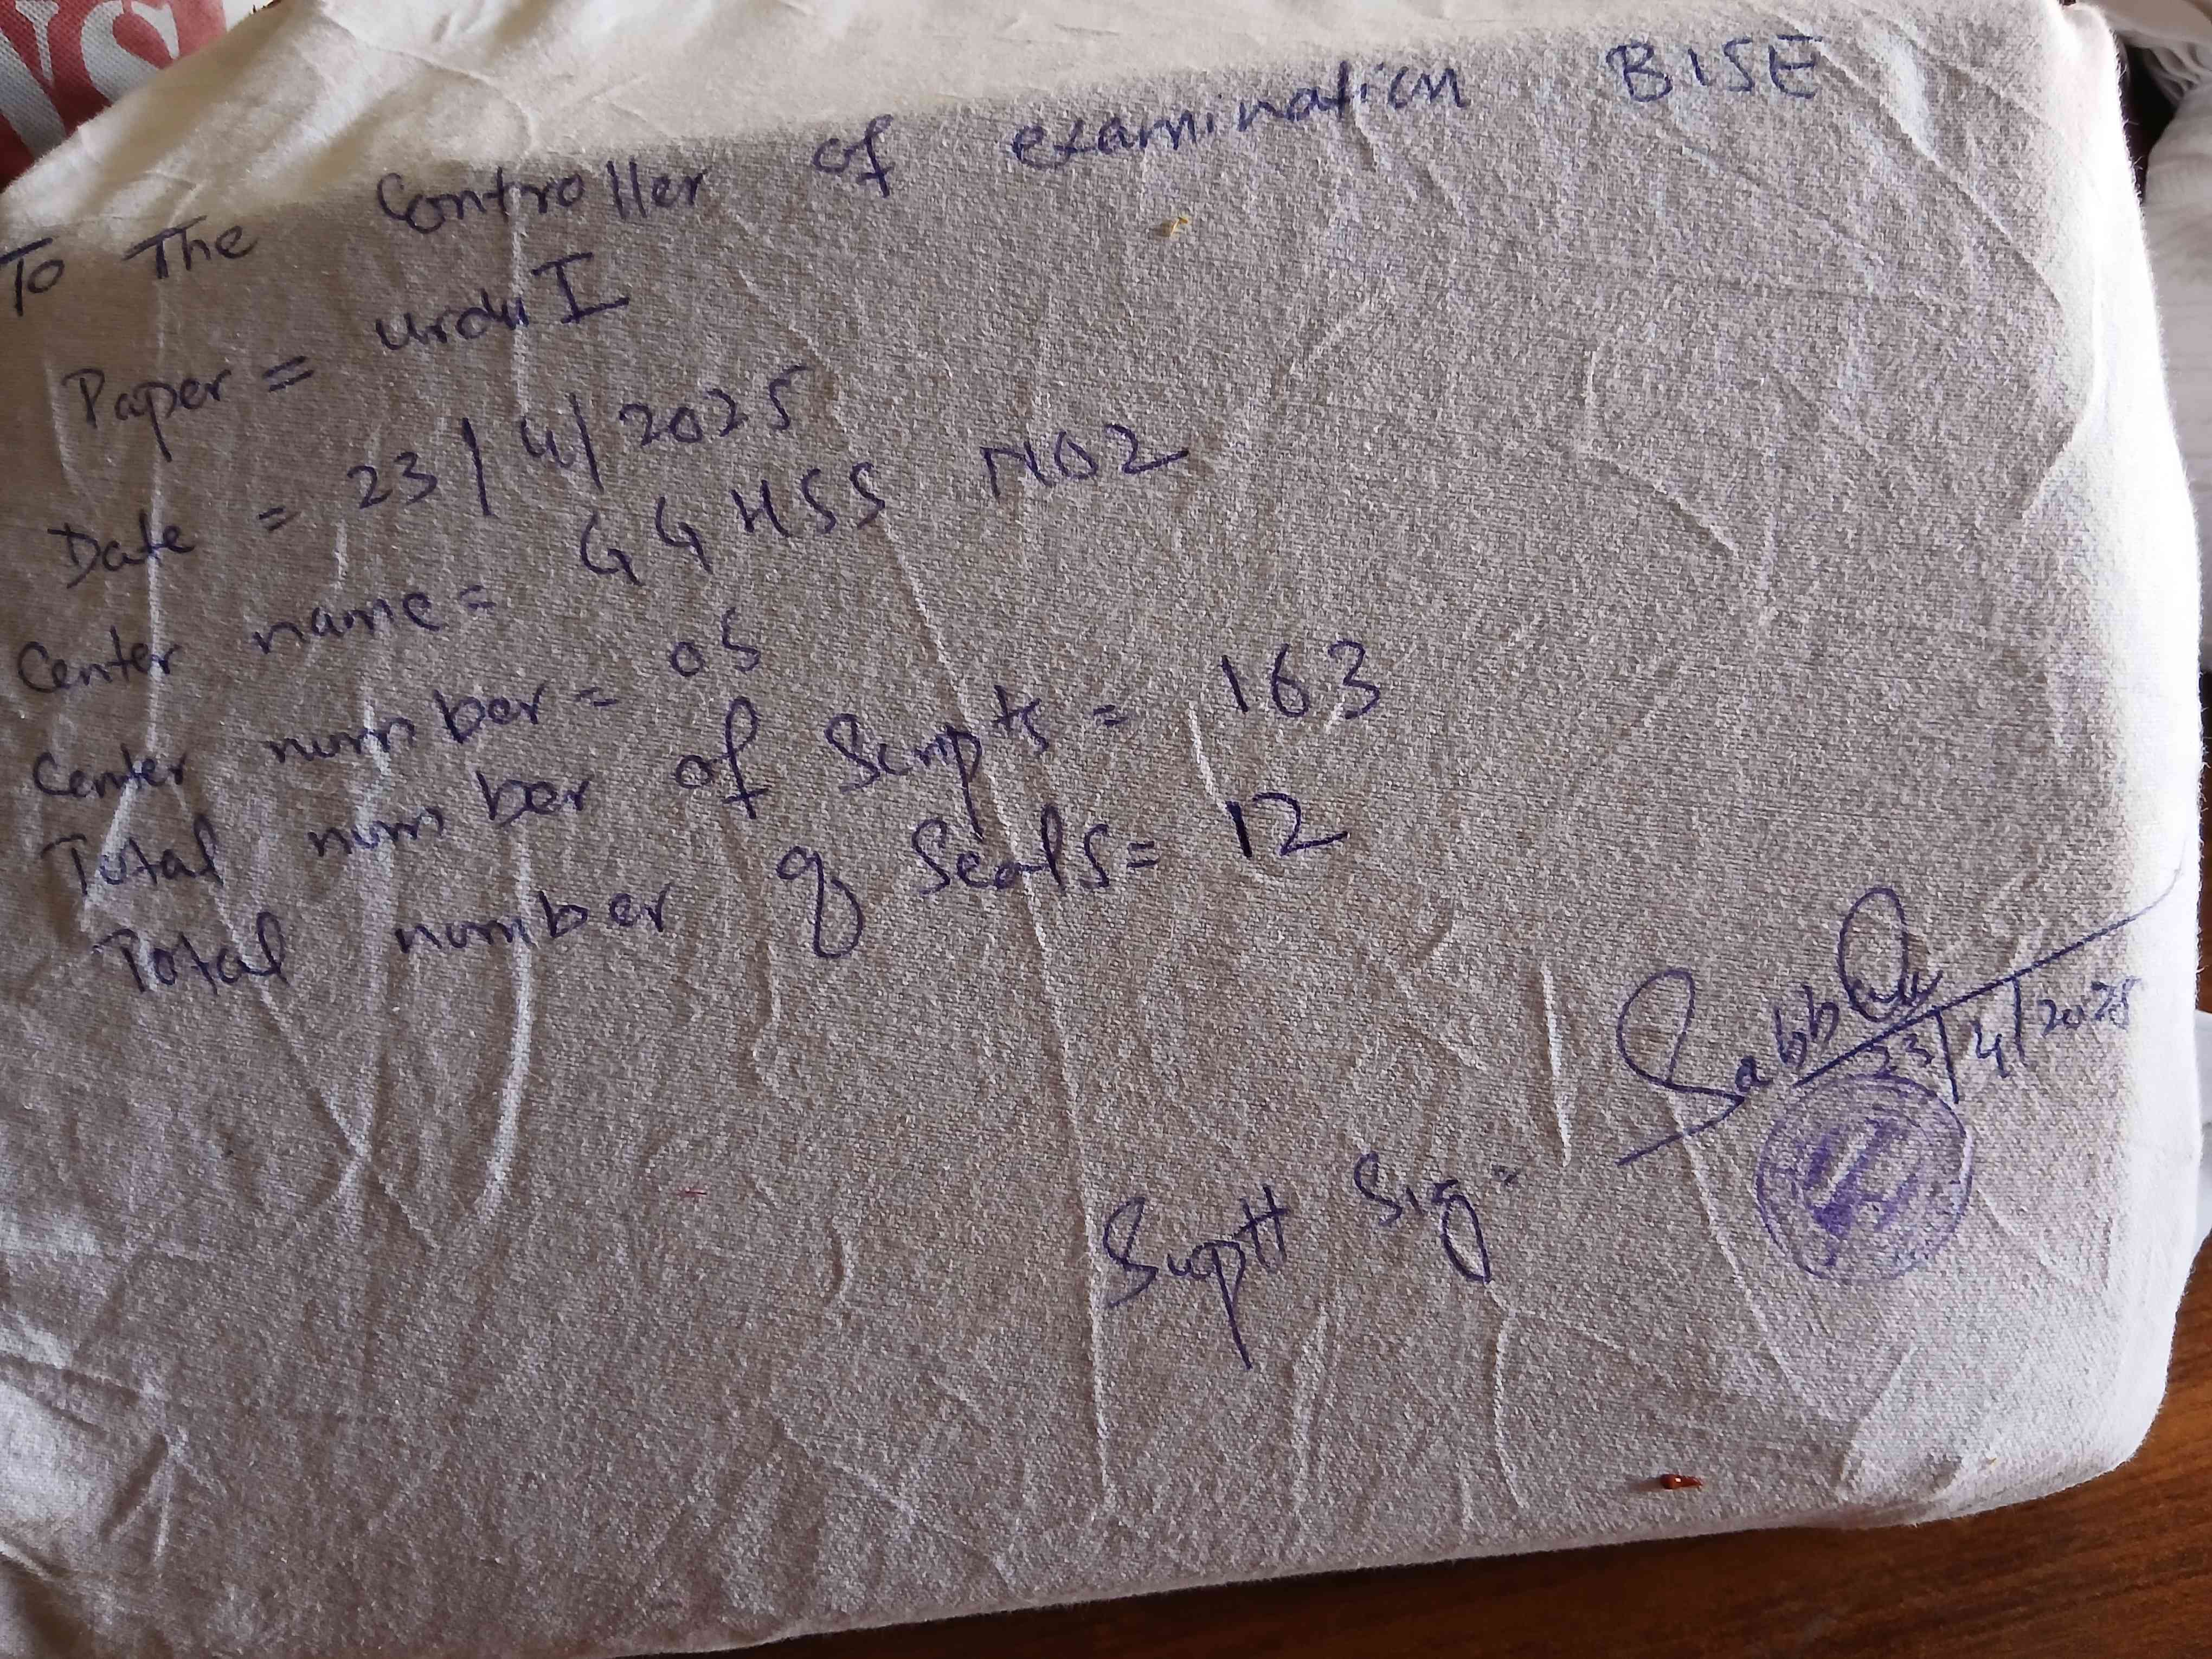 NS
To The Controller of examination BISE
Paper = urdu I
Date = 23/4/2025
Center name = GGHSS NO2
Center number = 05
Total number of Scripts = 163
Total number of Seals = 12
23/4/2025
Suptt Sig-